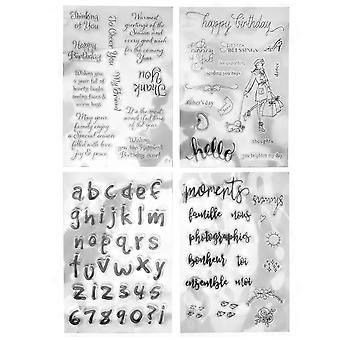 Thinking
of You
Happy
Birthday
Wishing you
a year full of
hearty laughs
moving faces &
warm hugs
May your
family enjoy
a Special
season filled
with love
joy & peace
Get Over You
My Friend
Warmest
greetings of the
Season and
every good wish
for the coming
Year
Thank
You
It's the most
wonderful time
of the year
Wishing
you the Happiest
Birthday ever!
happy birthday
BLESSINGS
sending you hugs
mother's day
thoughts
hello
you brighten my day
abcdef
ghijklm
nopqrs
tuvwxyz
12345
67890?!
moments
famille nous
photographies
bonheur toi
ensemble moi